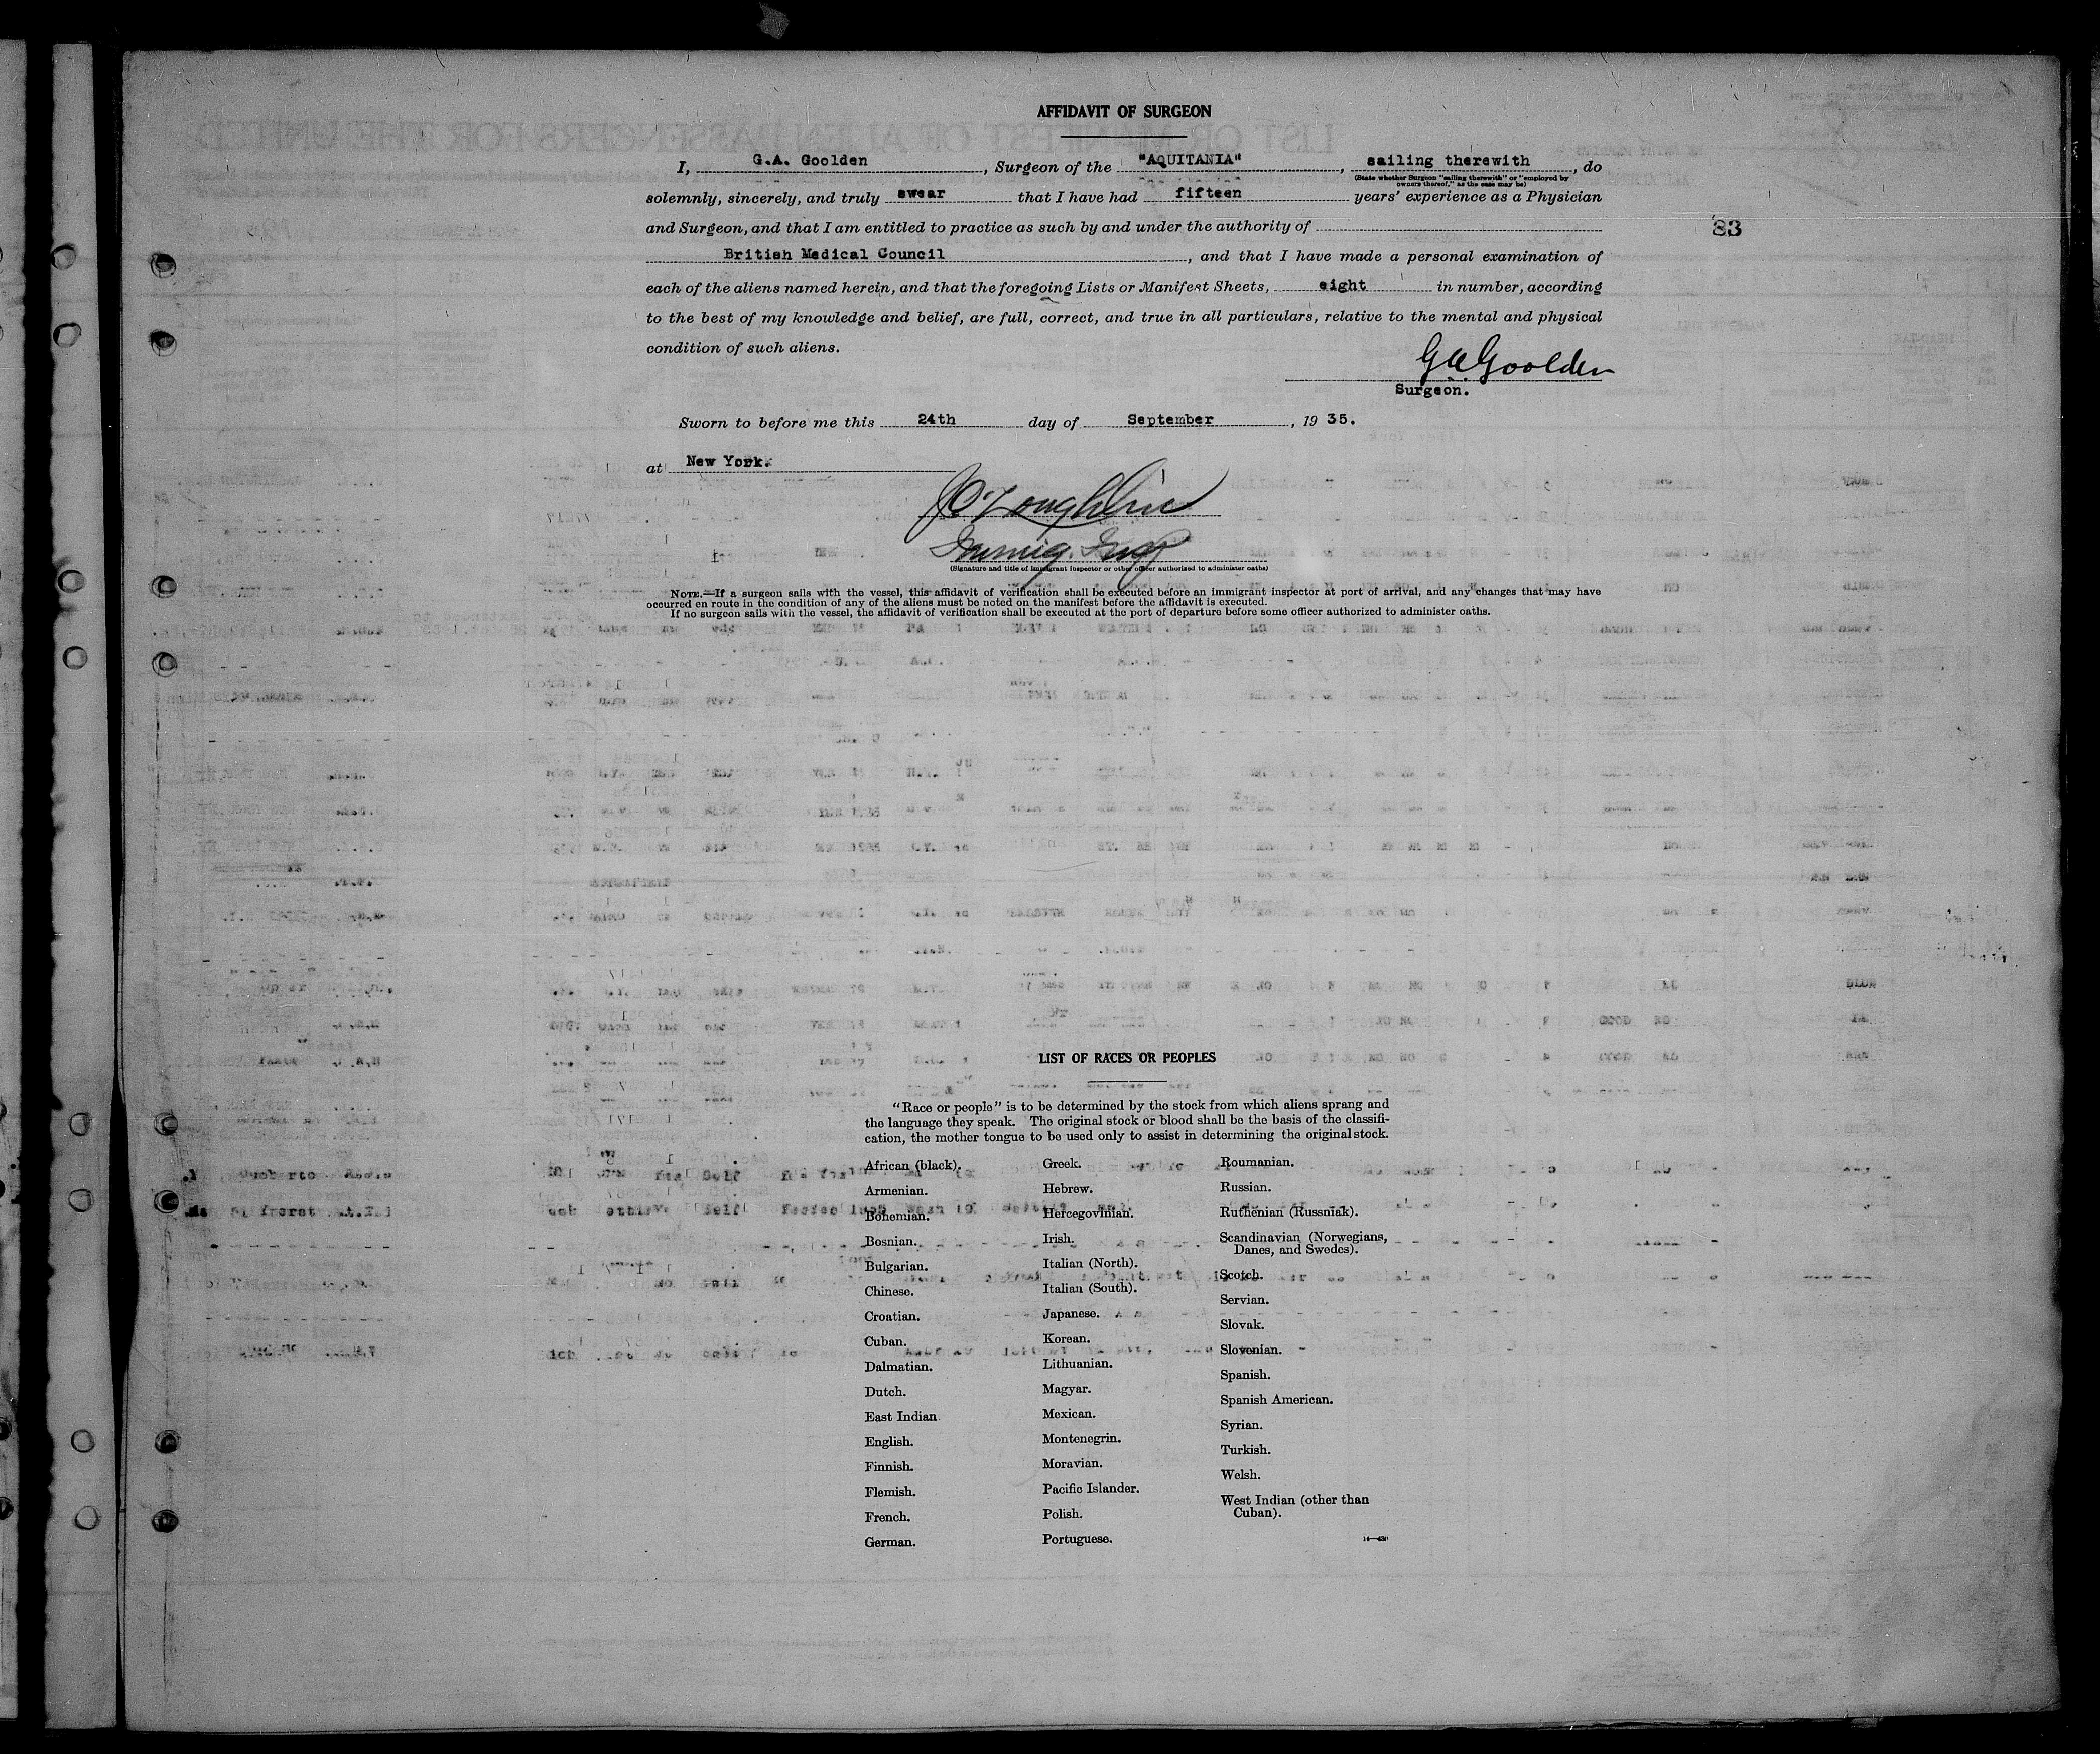 AFFIDAVIT OF SURGEON
I, G.A. Goolden, Surgeon of the "AQUITANIA", sailing therewith, do
(State whether Surgeon "sailing therewith" or "employed by
owners thereof," as the case may be)
solemnly, sincerely, and truly swear that I have had fifteen years' experience as a Physician
83
and Surgeon, and that I am entitled to practice as such by and under the authority of
British Medical Council, and that I have made a personal examination of
each of the aliens named herein, and that the foregoing Lists or Manifest Sheets, eight in number, according
to the best of my knowledge and belief, are full, correct, and true in all particulars, relative to the mental and physical
condition of such aliens.
G A Goolden
Surgeon.
Sworn to before me this 24th day of September, 19 35.
at New York.
J O'Loughlin
Immig. Insp
(Signature and title of immigrant inspector or other officer authorized to administer oaths)
NOTE.—If a surgeon sails with the vessel, this affidavit of verification shall be executed before an immigrant inspector at port of arrival, and any changes that may have
occurred en route in the condition of any of the aliens must be noted on the manifest before the affidavit is executed.
If no surgeon sails with the vessel, the affidavit of verification shall be executed at the port of departure before some officer authorized to administer oaths.
LIST OF RACES OR PEOPLES
"Race or people" is to be determined by the stock from which aliens sprang and
the language they speak. The original stock or blood shall be the basis of the classifi-
cation, the mother tongue to be used only to assist in determining the original stock.
African (black).
Armenian.
Bohemian.
Bosnian.
Bulgarian.
Chinese.
Croatian.
Cuban.
Dalmatian.
Dutch.
East Indian
English.
Finnish.
Flemish.
French.
German.
Greek.
Hebrew.
Hercegovinian.
Irish.
Italian (North).
Italian (South).
Japanese.
Korean.
Lithuanian.
Magyar.
Mexican.
Montenegrin.
Moravian.
Pacific Islander.
Polish.
Portuguese.
Roumanian.
Russian.
Ruthenian (Russniak).
Scandinavian (Norwegians,
Danes, and Swedes).
Scotch.
Servian.
Slovak.
Slovenian.
Spanish.
Spanish American.
Syrian.
Turkish.
Welsh.
West Indian (other than
Cuban).